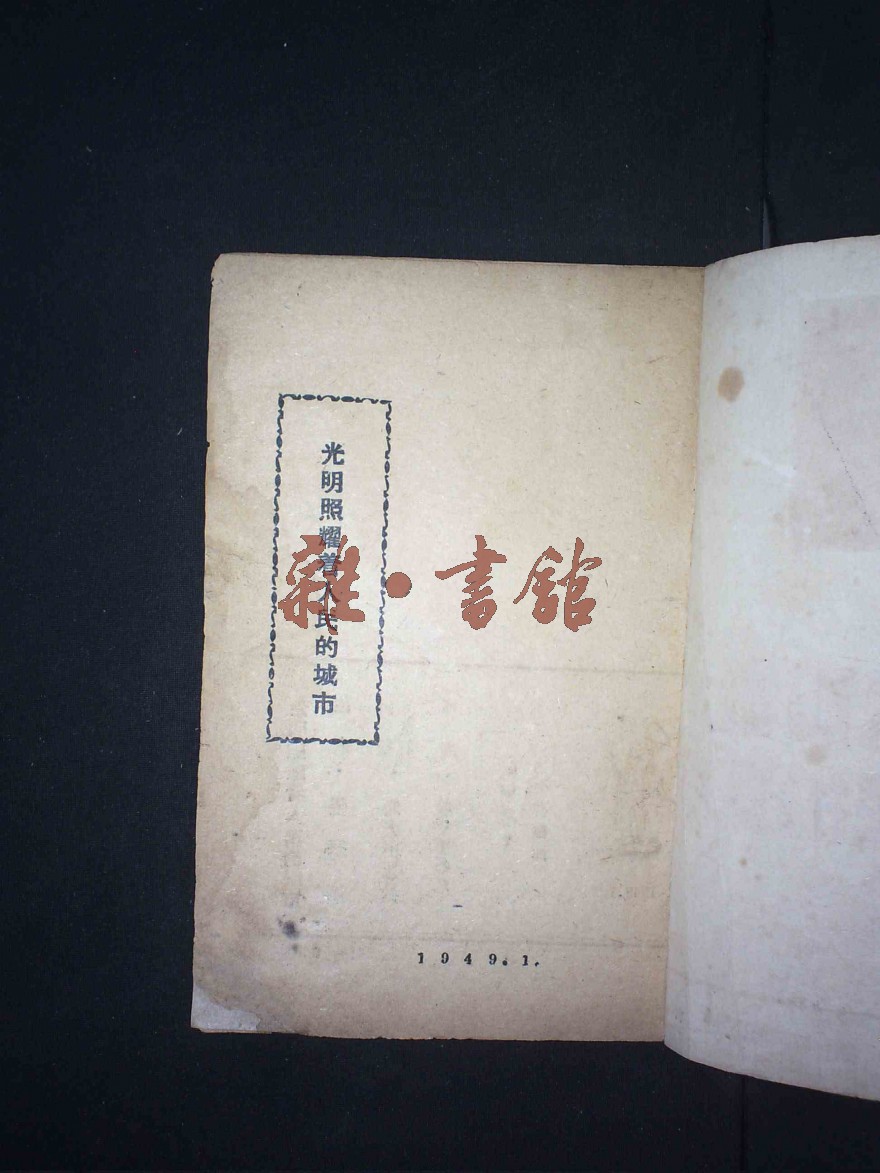 光明照耀着人民的城市
雜·書館
1949.1.